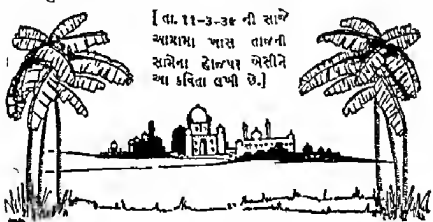 [ તા. ૧૧-૩-૩૯ ની સાંજે
આગ્રામાં ખાસ તાજની
સામેના હોજપર બેસીને
આ કવિતા લખી છે.]